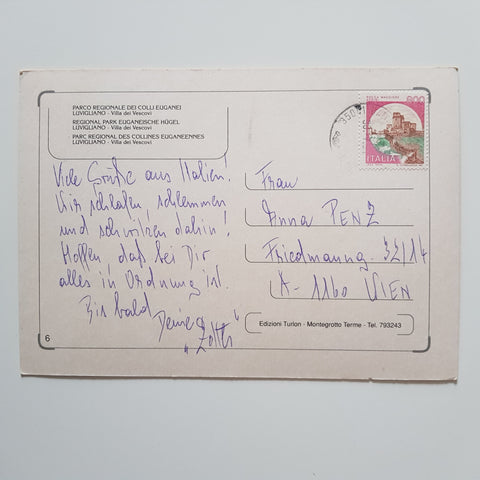 PARCO REGIONALE DEI COLLI EUGANEI
LUVIGLIANO - Villa dei Vescovi
REGIONAL PARK EUGANEISCHE HÜGEL
LUVIGLIANO - Villa dei Vescovi
PARC REGIONAL DES COLLINES EUGANEENNES
LUVIGLIANO - Villa dei Vescovi
Viele Grüße aus Italien!
Wir schlafen, schlemmen
und schwitzen dahin!
Hoffen daß bei Dir
alles in Ordnung ist.
Bis bald
Deine
6
600
ITALIA
Frau
Anna PENZ
Friedmanng. 32/14
A-1160 WIEN
Edizioni Turlon - Montegrotto Terme - Tel. 793243